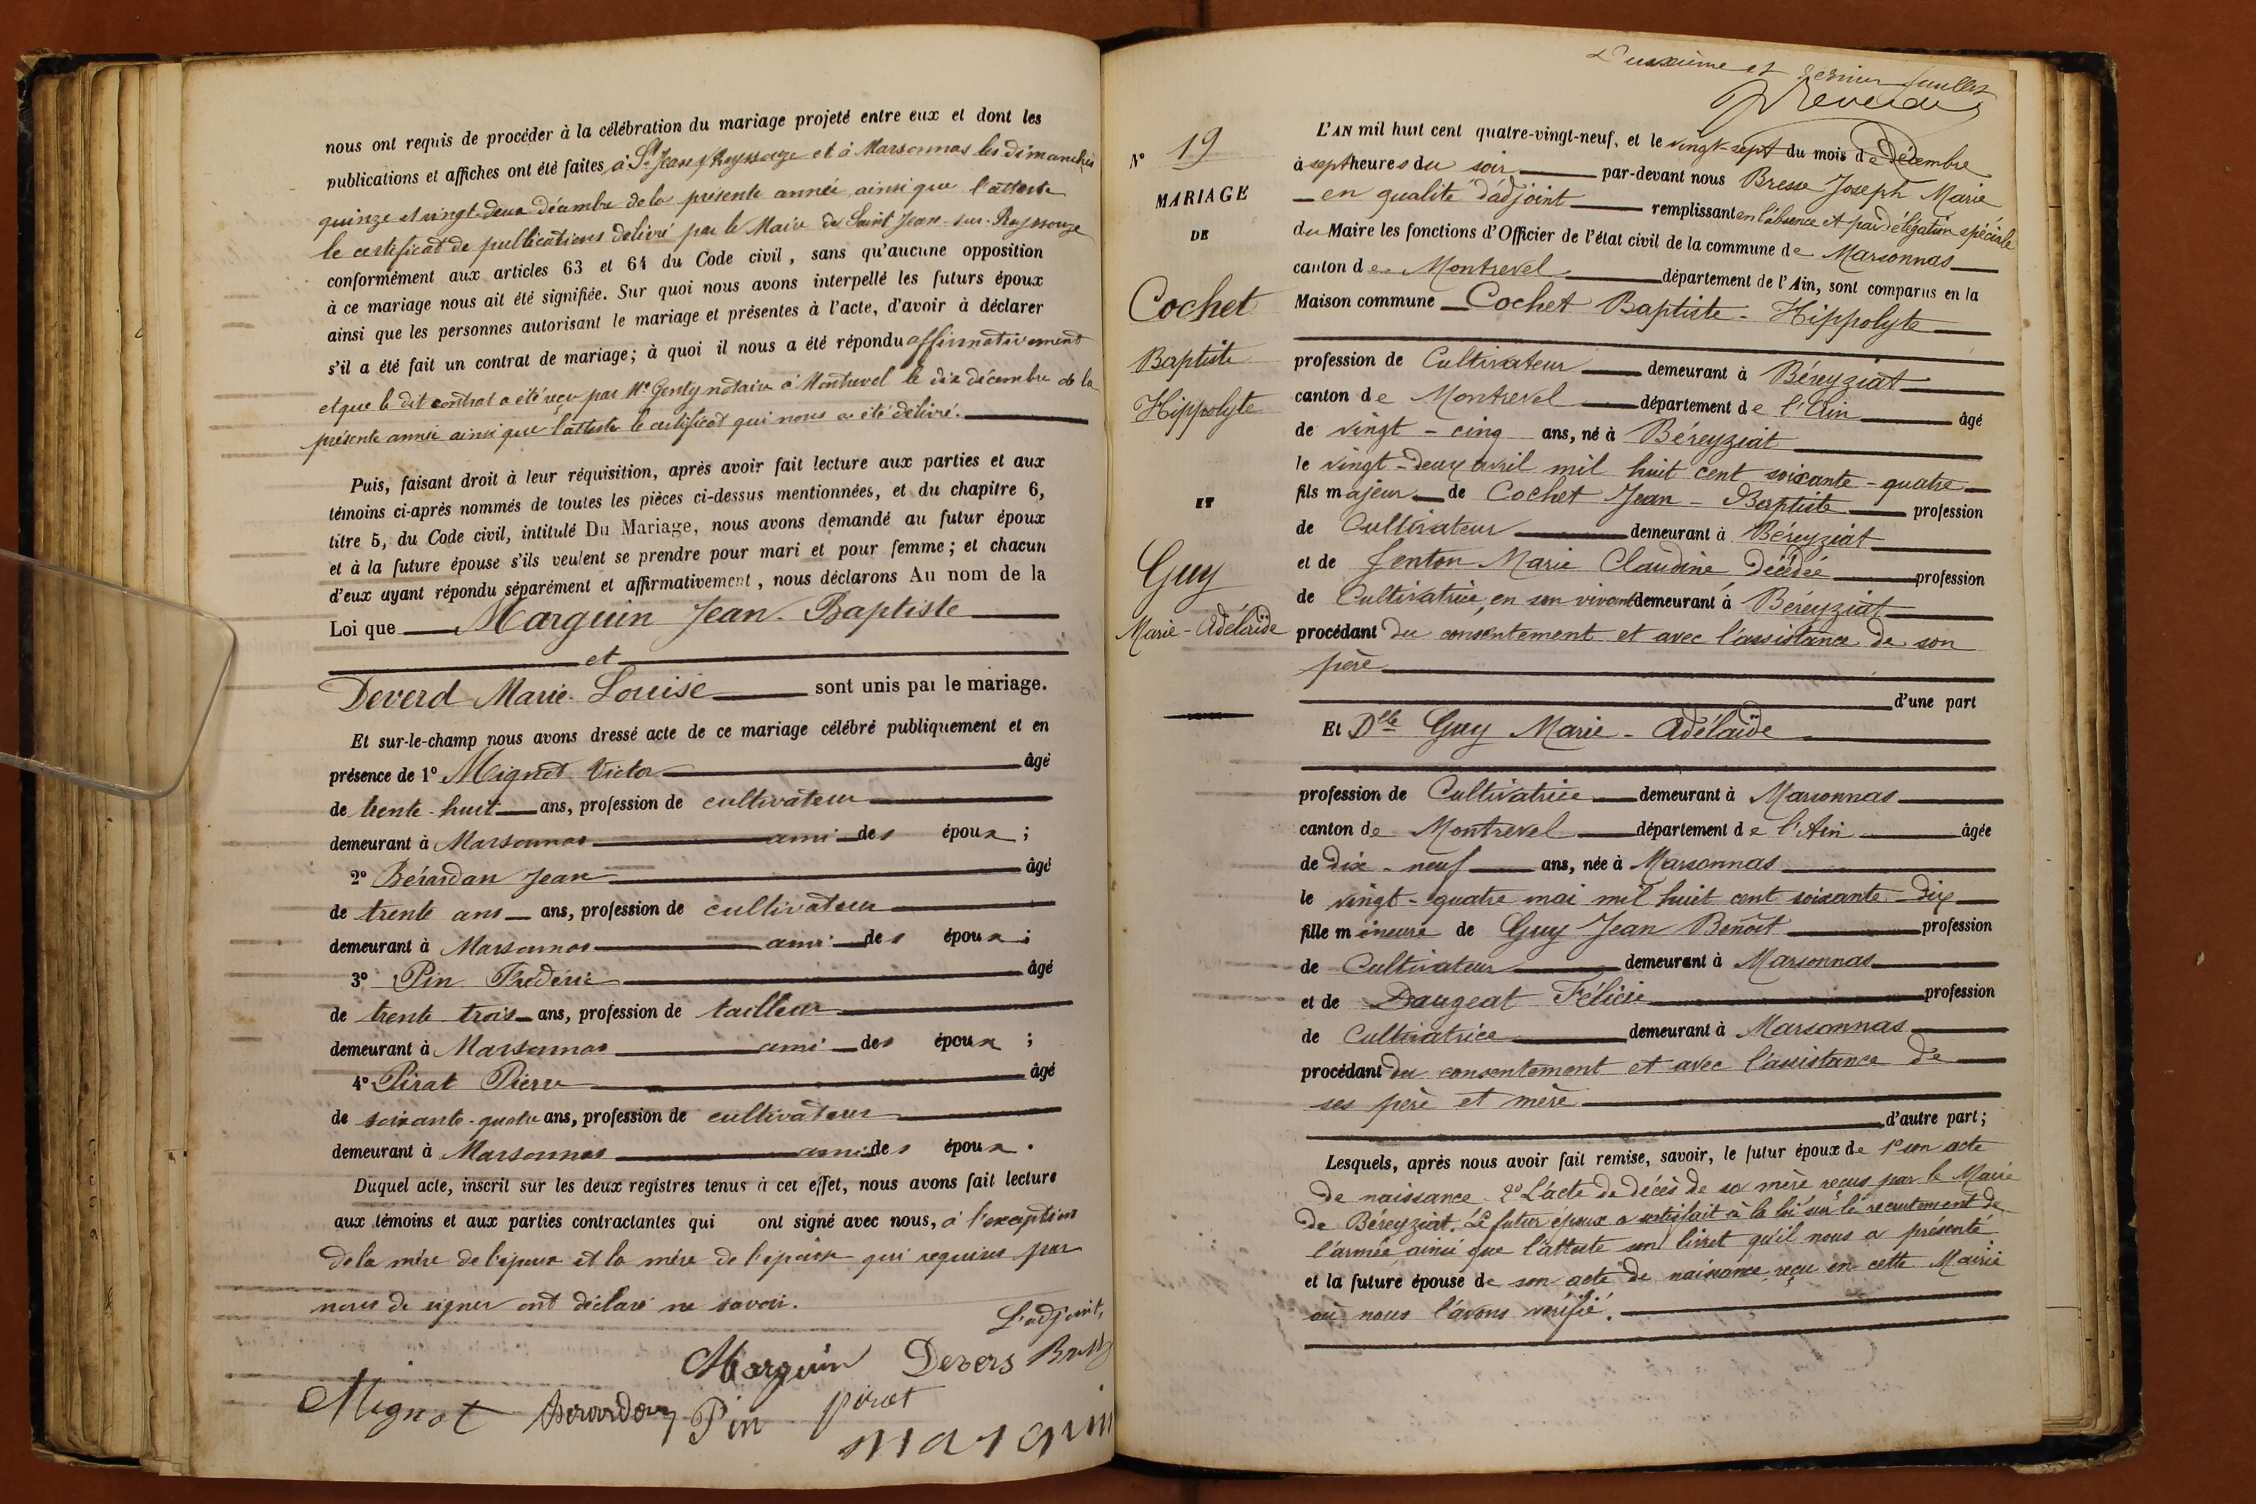 nous ont requis de procéder à la célébration du mariage projeté entre eux et dont les
publications et affiches ont été faites à St Jean s/ Reyssouze et à Marsonnas les dimanches
quinze et vingt-deux décembre de la présente année ainsi que l'atteste
le certificat de publications délivré par le Maire de Saint Jean-sur-Reyssouze
conformément aux articles 63 et 64 du Code civil, sans qu'aucune opposition
à ce mariage nous ait été signifiée. Sur quoi nous avons interpellé les futurs époux
ainsi que les personnes autorisant le mariage et présentes à l'acte, d'avoir à déclarer
s'il a été fait un contrat de mariage; à quoi il nous a été répondu affirmativement
et que le dit contrat a été reçu par Me Genty notaire à Montrevel le dix décembre de la
présente année ainsi que l'atteste le certificat qui nous a été délivré.
Puis, faisant droit à leur réquisition, après avoir fait lecture aux parties et aux
témoins ci-après nommés de toutes les pièces ci-dessus mentionnées, et du chapitre 6,
titre 5, du Code civil, intitulé Du Mariage, nous avons demandé au futur époux
et à la future épouse s'ils veulent se prendre pour mari et pour femme; et chacun
d'eux ayant répondu séparément et affirmativement, nous déclarons Au nom de la
Loi que Marguin Jean-Baptiste
et
Deverd Marie-Louise sont unis par le mariage.
Et sur-le-champ nous avons dressé acte de ce mariage célébré publiquement et en
présence de 1° Mignot Victor âgé
de trente-huit ans, profession de cultivateur
demeurant à Marsonnas ami des époux;
2° Bérardan Jean âgé
de trente ans ans, profession de cultivateur
demeurant à Marsonnas ami des époux;
3° Pin Frédéric âgé
de trente trois ans, profession de tailleur
demeurant à Marsonnas ami des époux;
4° Pirat Pierre âgé
de soixante-quatre ans, profession de cultivateur
demeurant à Marsonnas ami des époux.
Duquel acte, inscrit sur les deux registres tenus à cet effet, nous avons fait lecture
aux témoins et aux parties contractantes qui ont signé avec nous, à l'exception
de la mère de l'époux et la mère de l'épouse qui requises par
nous de signer ont déclaré ne savoir.
L'adjoint,
Marguin Devers
Mignot Berardan Pin pirat
marguin
Deuxième et dernier feuillet
L'AN mil huit cent quatre-vingt-neuf, et le vingt-sept du mois de décembre
N° 19
à sept heures du soir par-devant nous Bresse Joseph Marie
MARIAGE
en qualité d'adjoint remplissant en l'absence et par délégation spéciale
DE
du Maire les fonctions d'Officier de l'état civil de la commune de Marsonnas
canton de Montrevel département de l'Ain, sont comparus en la
Cochet
Maison commune Cochet Baptiste-Hippolyte
Baptiste
profession de Cultivateur demeurant à Béreyziat
Hippolyte
canton de Montrevel département de l'Ain âgé
de vingt-cinq ans, né à Béreyziat
le vingt-deux avril mil huit cent soixante-quatre
ET
fils majeur de Cochet Jean-Baptiste profession
de Cultivateur demeurant à Béreyziat
Guy
et de Fenton Marie Claudine décédée profession
de Cultivatrice, en son vivant demeurant à Béreyziat
Marie-Adélaïde
procédant du consentement et avec l'assistance de son
père
d'une part
Et Dlle Guy Marie-Adélaïde
profession de Cultivatrice demeurant à Marsonnas
canton de Montrevel département de l'Ain âgée
de dix-neuf ans, née à Marsonnas
le vingt-quatre mai mil huit cent soixante-dix
fille mineure de Guy Jean Benoît profession
de Cultivateur demeurant à Marsonnas
et de Daugeat Félicie profession
de Cultivatrice demeurant à Marsonnas
procédant du consentement et avec l'assistance de
ses père et mère
d'autre part;
Lesquels, après nous avoir fait remise, savoir, le futur époux de 1° son acte
de naissance 2° L'acte de décès de sa mère reçus par le Maire
de Béreyziat. Le futur époux a satisfait à la loi sur le recrutement de
l'armée ainsi que l'atteste son livret qu'il nous a présenté
et la future épouse de son acte de naissance reçu en cette Mairie
où nous l'avons vérifié.